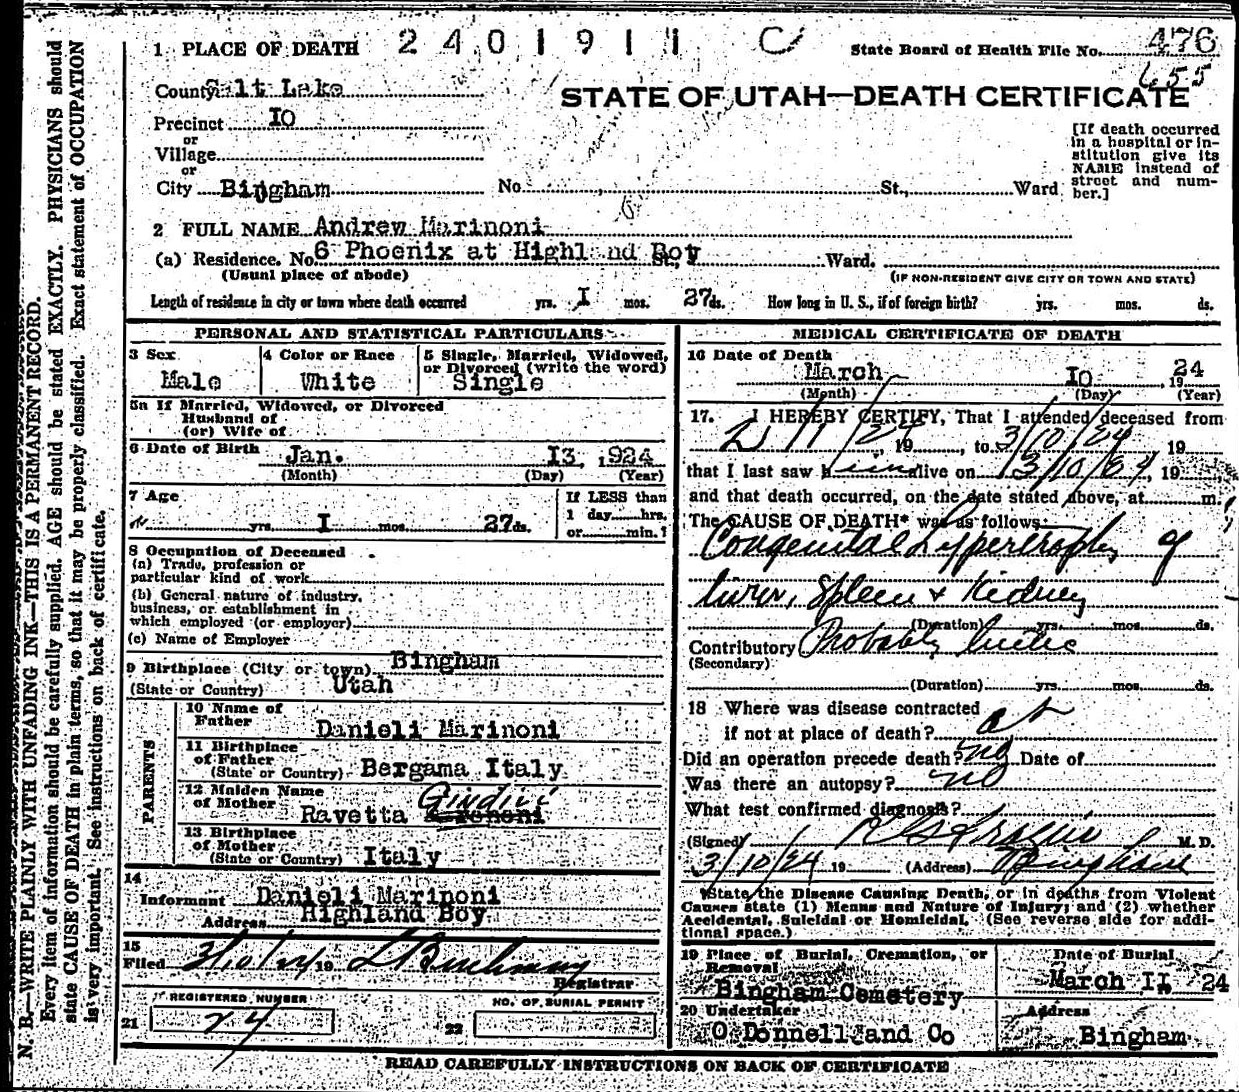 1 PLACE OF DEATH 2401911 C State Board of Health File No. 476
655
County Salt Lake
STATE OF UTAH—DEATH CERTIFICATE
Precinct 10
or
Village
or
City Bingham No. St., Ward
[If death occurred
in a hospital or in-
stitution give its
NAME instead of
street and num-
ber.]
2 FULL NAME Andrew Marinoni
(a) Residence. No. 6 Phoenix at Highland Boy St., Ward.
(Usual place of abode) (IF NON-RESIDENT GIVE CITY OR TOWN AND STATE)
Length of residence in city or town where death occurred yrs. I mos. 27 ds. How long in U. S., if of foreign birth? yrs. mos. ds.
PERSONAL AND STATISTICAL PARTICULARS
3 Sex 4 Color or Race 5 Single, Married, Widowed,
or Divorced (write the word)
Male White Single
5a If Married, Widowed, or Divorced
Husband of
(or) Wife of
6 Date of Birth Jan. I3, 1924
(Month) (Day) (Year)
7 Age If LESS than
1 day hrs.
yrs. I mos. 27 ds. or min.?
8 Occupation of Deceased
(a) Trade, profession or
particular kind of work
(b) General nature of industry,
business, or establishment in
which employed (or employer)
(c) Name of Employer
9 Birthplace (City or town) Bingham
(State or Country) Utah
PARENTS
10 Name of
Father Danieli Marinoni
11 Birthplace
of Father
(State or Country) Bergama Italy
12 Maiden Name
of Mother Ravetta Giudici
13 Birthplace
of Mother
(State or Country) Italy
14
Informant Danieli Marinoni
Address Highland Boy
15
Filed 3/10/24 19
Registrar
REGISTERED NUMBER NO. OF BURIAL PERMIT
21 24 22
MEDICAL CERTIFICATE OF DEATH
16 Date of Death
March IO, 1924
(Month) (Day) (Year)
17. I HEREBY CERTIFY, That I attended deceased from
19 , to 3/10/24 19
that I last saw him alive on 3/10/24, 19
and that death occurred, on the date stated above, at m.
The CAUSE OF DEATH* was as follows:
Congenital Hypertrophy of
liver, Spleen & Kidney
(Duration) yrs. mos. ds.
Contributory Probably luetic
(Secondary)
(Duration) yrs. mos. ds.
18 Where was disease contracted
if not at place of death? at
Did an operation precede death? no Date of
Was there an autopsy? no
What test confirmed diagnosis?
(Signed) M. D.
3/10/24 19 (Address) Bingham
*State the Disease Causing Death, or in deaths from Violent
Causes state (1) Means and Nature of Injury; and (2) whether
Accidental, Suicidal or Homicidal. (See reverse side for addi-
tional space.)
19 Place of Burial, Cremation, or
Removal Date of Burial
Bingham Cemetery March II, 24
20 Undertaker Address
O Donnell and Co Bingham
READ CAREFULLY INSTRUCTIONS ON BACK OF CERTIFICATE
N. B.—WRITE PLAINLY WITH UNFADING INK—THIS IS A PERMANENT RECORD.
Every item of information should be carefully supplied. AGE should be stated EXACTLY. PHYSICIANS should
state CAUSE OF DEATH in plain terms, so that it may be properly classified. Exact statement of OCCUPATION
is very important. See instructions on back of certificate.